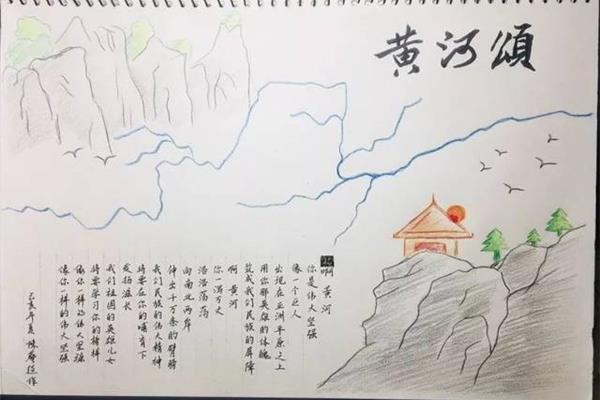 黄河頌
啊黄河
你是伟大坚强
像一个巨人
出现在亚洲平原之上
用你那英雄的体魄
筑成我们民族的屏障
啊黄河
你一泻万丈
浩浩荡荡
向南北两岸
伸出千万条的臂膀
我们民族的伟大精神
将要在你的哺育下
发扬滋长
我们祖国的英雄儿女
将要学习你的榜样
像你一样的伟大坚强
像你一样的伟大坚强
己亥年夏 陈